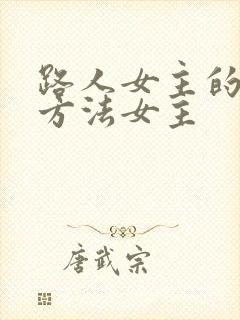 路人女主的
方法女主
唐武宗